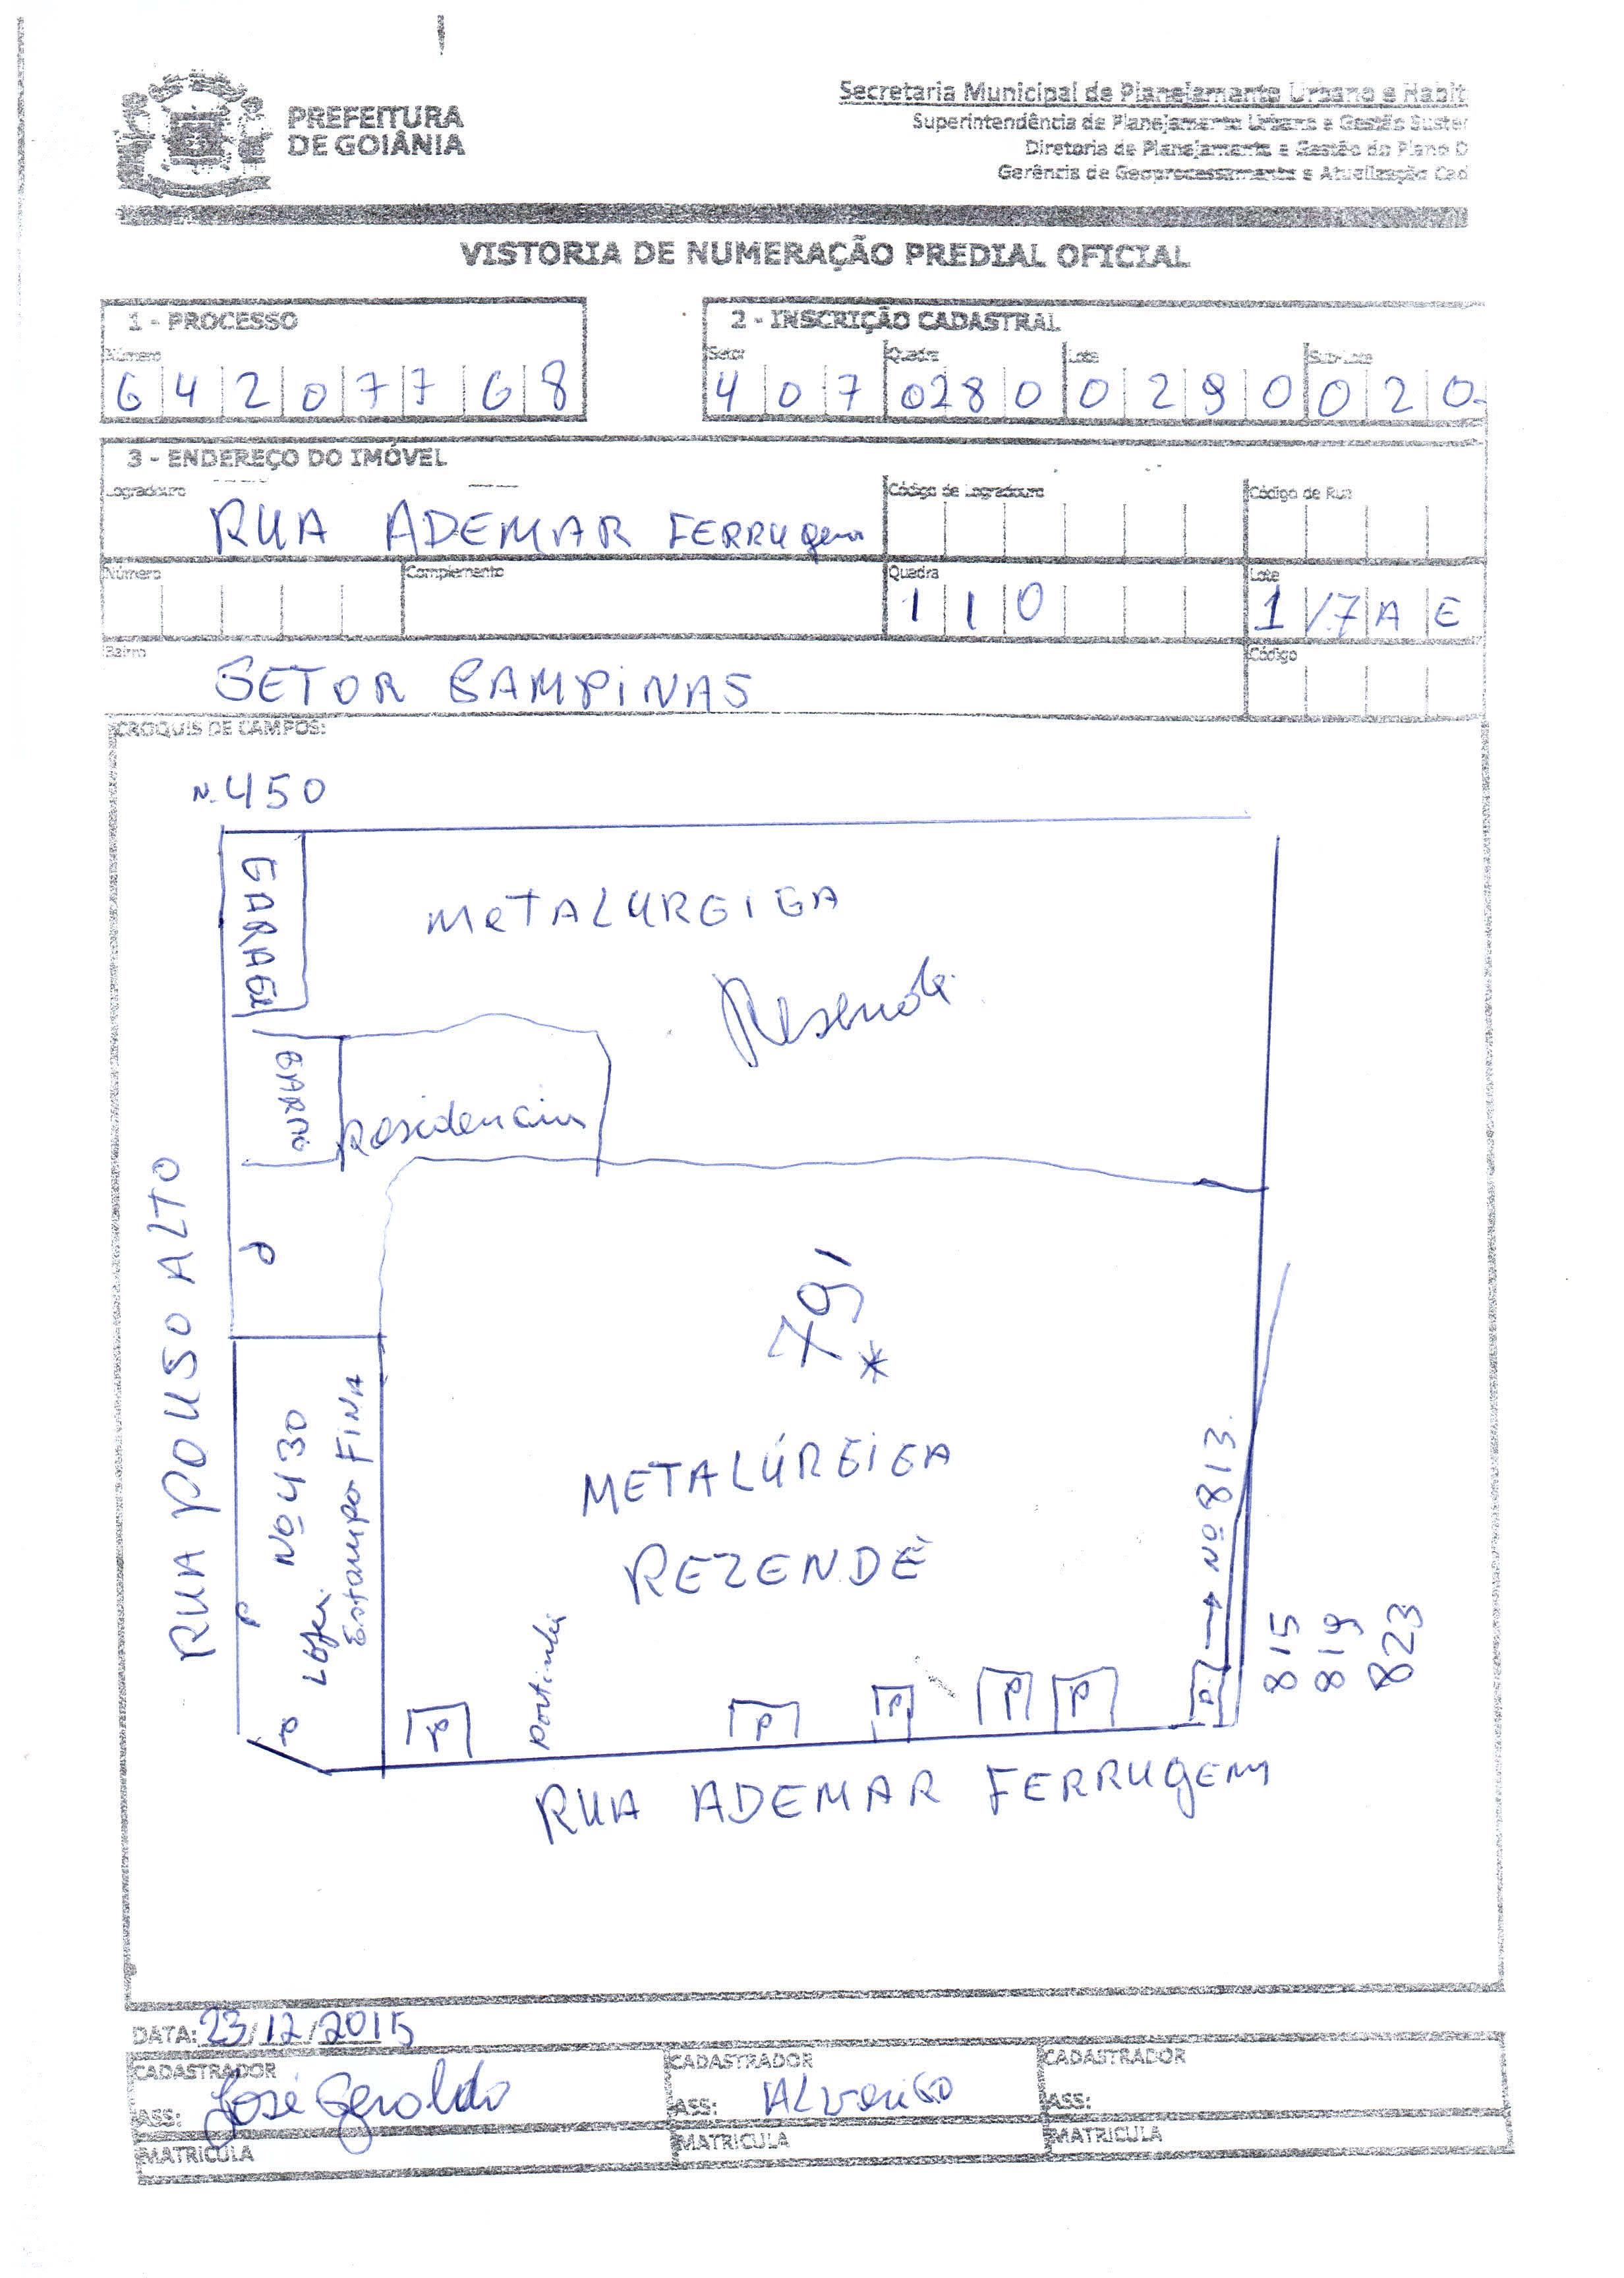 PREFEITURA
DE GOIÂNIA
Secretaria Municipal de Planejamento Urbano e Habit
Superintendência de Planejamento Urbano e Gestão Suster
Diretoria de Planejamento e Gestão do Plano D
Gerência de Geoprocessamento e Atualização Cad
VISTORIA DE NUMERAÇÃO PREDIAL OFICIAL
1 - PROCESSO
Número
6 4 2 0 7 7 6 8
2 - INSCRIÇÃO CADASTRAL
Setor Quadra Lote Sub-Lote
4 0 7 0280 0 2 9 0 0 2 0
3 - ENDEREÇO DO IMÓVEL
Logradouro Código de Logradouro Código de Rua
RUA ADEMAR FERRUgem
Número Complemento Quadra Lote
1 1 0 1 /7 A E
Bairro Código
SETOR CAMPINAS
CROQUIS DE CAMPOS:
N. 450
GARAGE
METALURGICA
Resende
Residencia
RUA POUSO ALTO
791
*
Nº 430
Loja
Estampa FINA
METALÚRGICA
REZENDE
Nº 813
815
819
823
portinha
P
P
P
P
P
P
P
RUA ADEMAR FERRUgem
DATA: 23/12/2015
CADASTRADOR CADASTRADOR CADASTRADOR
ASS: José Geraldo ASS: ASS:
MATRICULA MATRICULA MATRICULA